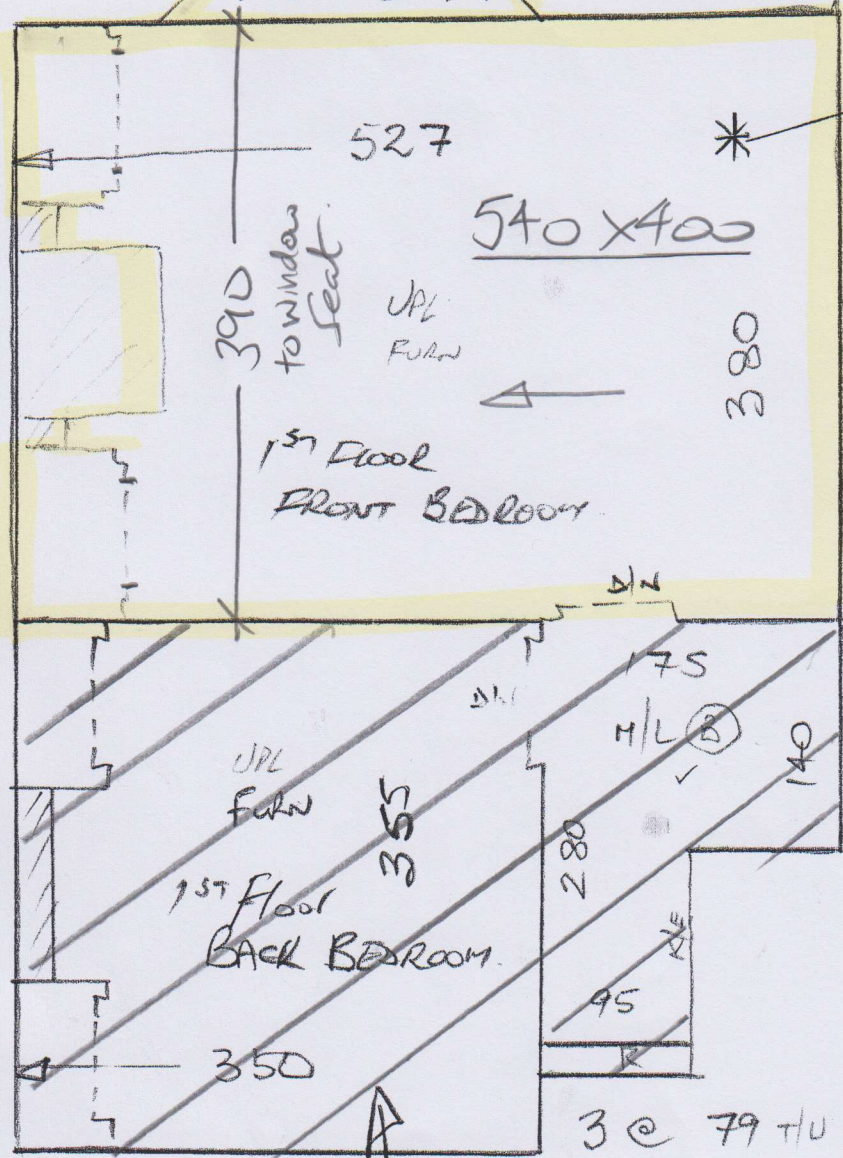 527
540 x 400
390
to window
seat.
UPL
FURN
380
1ST FLOOR
FRONT BEDROOM
D/N
175
D/N
H/L
140
UPL
FURN
355
280
1ST Floor
BACK BEDROOM.
K/E
95
R
350
3 @ 79 T/U